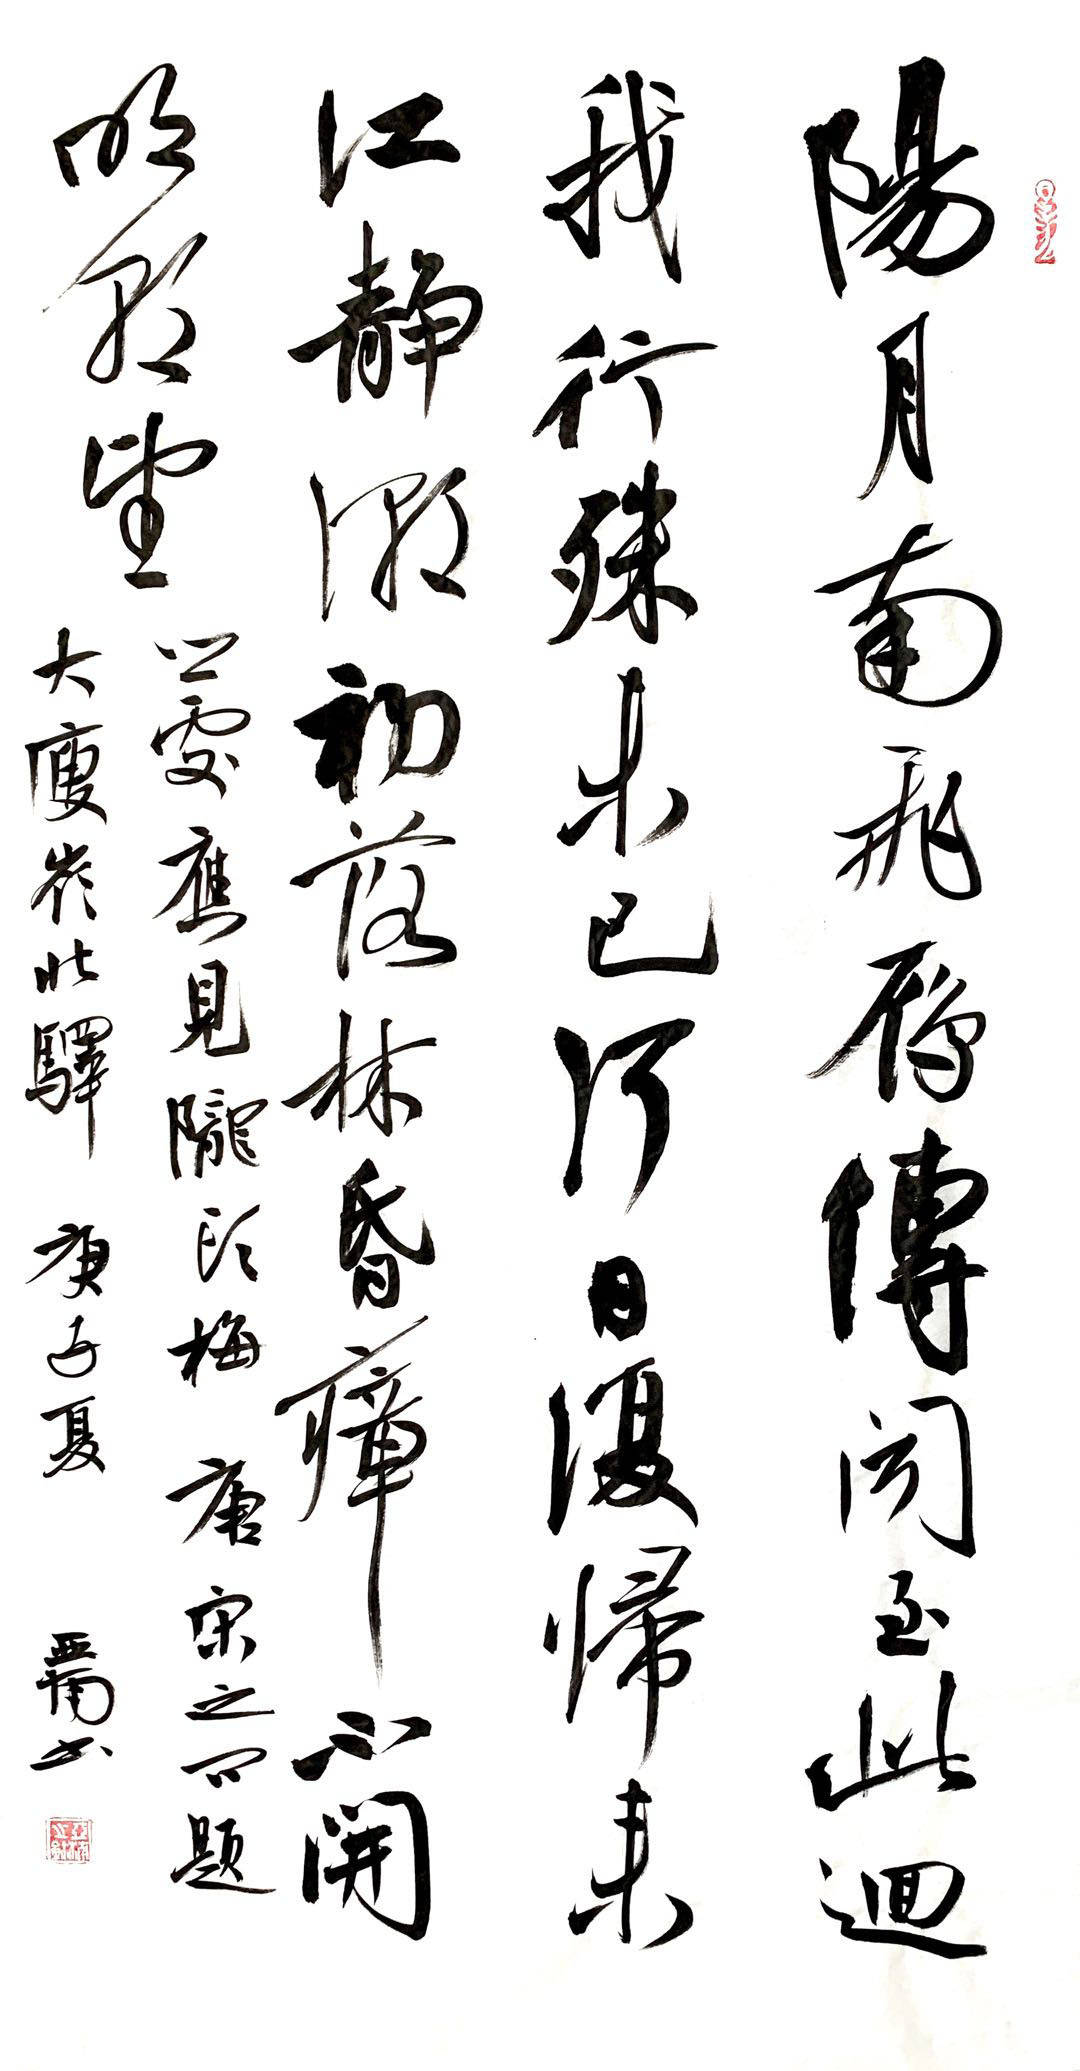 陽月南飛雁傳聞至此迴
我行殊未已何日復歸來
江静潮初落林昏瘴不開
明朝望
鄉處應見隴頭梅 唐宋之問題
大庾嶺北驛 庚子夏 亞南書